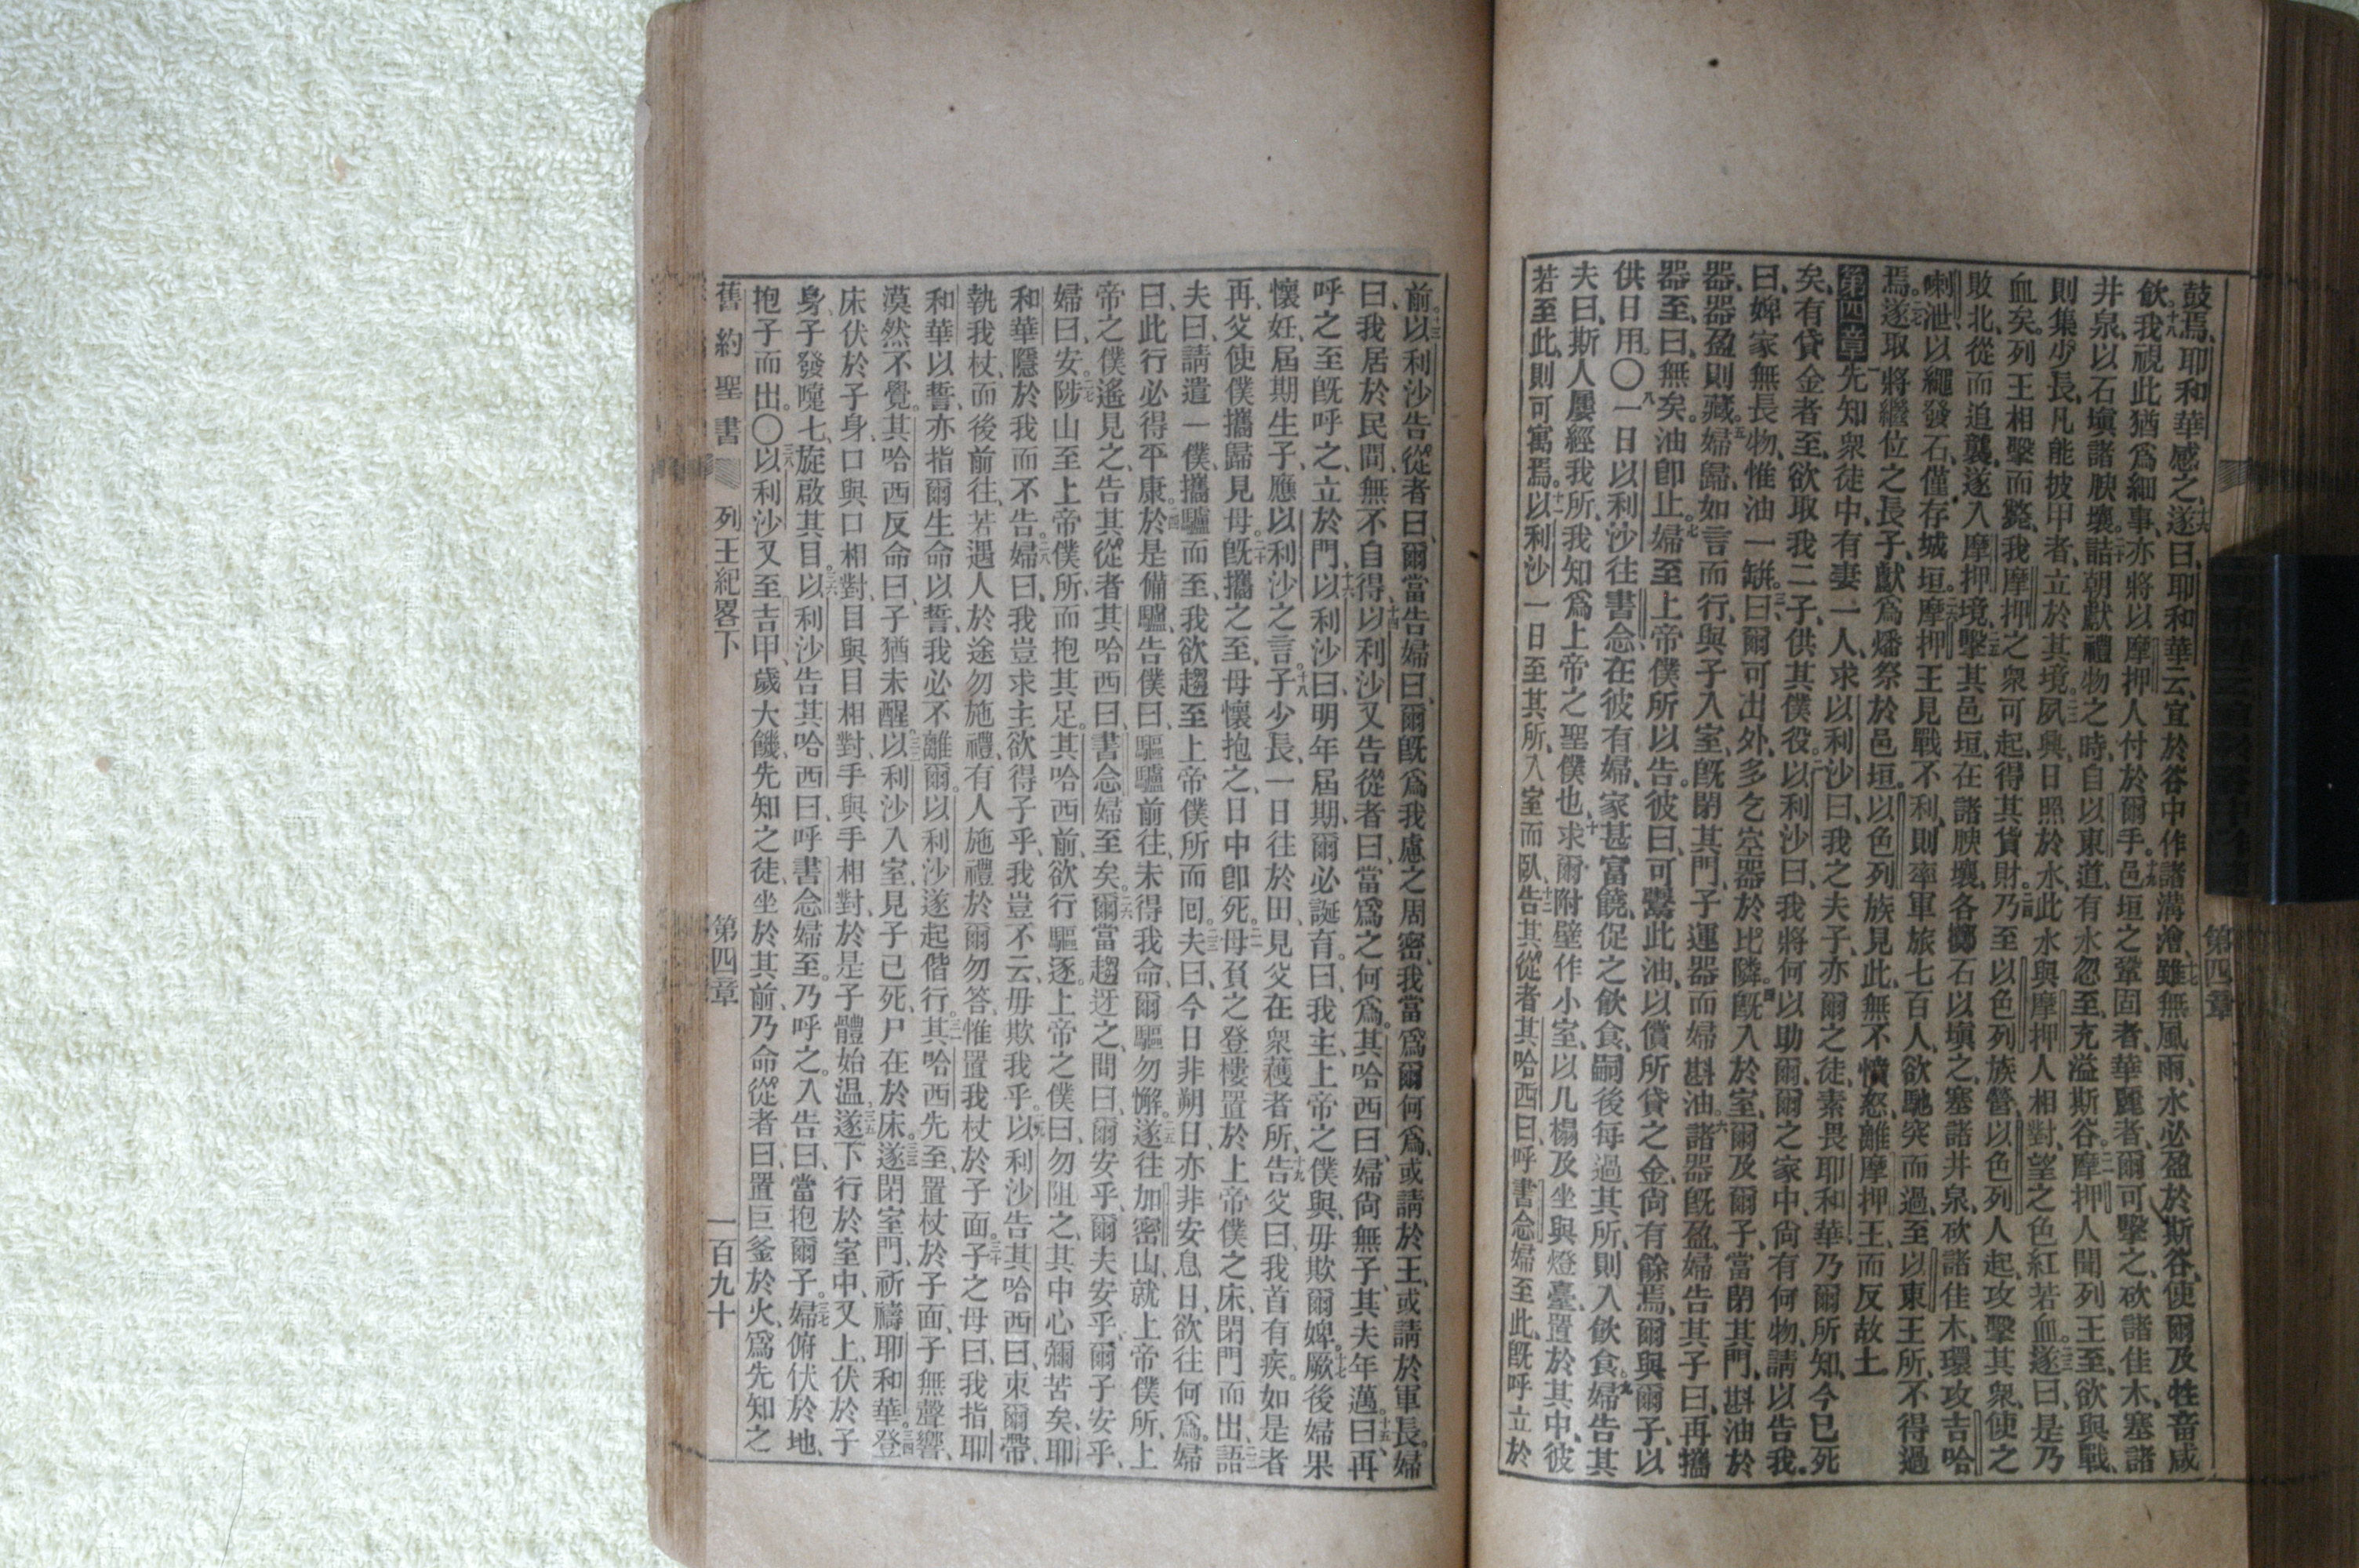 鼓焉、耶和華感之、遂曰、耶和華云、宜於谷中作諸溝澮、雖無風雨、水必盈於斯谷、使爾及牲畜咸
飲、我視此猶爲細事、亦將以摩押人付於爾手。邑垣之鞏固者、華麗者、爾可擊之、砍諸佳木、塞諸
井泉、以石塡諸腴壤。詰朝獻禮物之時、自以東道、有水忽至、充溢斯谷。摩押人聞列王至、欲與戰、
則集少長、凡能披甲者、立於其境。夙興、日照於水、此水與摩押人相對、望之色紅若血、遂曰、是乃
血矣。列王相擊而斃、我摩押之衆可起、得其貨財。乃至以色列族營、以色列人起、攻擊其衆、使之
敗北、從而追襲、遂入摩押境、擊其邑垣、在諸腴壤、各擲石以塡之、塞諸井泉、砍諸佳木、環攻吉哈
喇泄、以繩發石、僅存城垣。摩押王見戰不利、則率軍旅七百人、欲馳突而過、至以東王所、不得過
焉。遂取將繼位之長子、獻爲燔祭於邑垣。以色列族見此、無不憤怒、離摩押王、而反故土
第四章 先知衆徒中、有妻一人、求以利沙曰、我之夫子、亦爾之徒、素畏耶和華、乃爾所知、今已死
矣、有貸金者至、欲取我二子、供其僕役。以利沙曰、我將何以助爾、爾之家中、尙有何物、請以告我。
曰、婢家無長物、惟油一缾。曰、爾可出外、多乞空器於比隣。旣入於室、爾及爾子、當閉其門、斟油於
器、器盈則藏。婦歸、如言而行、與子入室、旣閉其門、子運器而婦斟油。諸器旣盈、婦告其子曰、再攜
器至、曰、無矣。油卽止。婦至上帝僕所以告。彼曰、可鬻此油、以償所貸之金、尙有餘焉、爾與爾子、以
供日用。〇一日以利沙往書念、在彼有婦、家甚富饒、促之飮食、嗣後每過其所、則入飮食。婦告其
夫曰、斯人屢經我所、我知爲上帝之聖僕也、求爾附壁作小室、以几榻及坐與燈臺、置於其中、彼
若至此、則可寓焉。以利沙一日至其所、入室而臥、告其從者其哈西曰、呼書念婦至此、旣呼立於
第四章
前。以利沙告從者曰、爾當告婦曰、爾旣爲我慮之周密、我當爲爾何爲、或請於王、或請於軍長。婦
曰、我居於民間、無不自得、以利沙又告從者曰、當爲之何爲。其哈西曰、婦尙無子、其夫年邁。曰、再
呼之至、旣呼之、立於門、以利沙曰、明年屆期、爾必誕育。曰、我主、上帝之僕與、毋欺爾婢。厥後婦果
懷妊、屆期生子、應以利沙之言。子少長、一日往於田、見父在衆穫者所、告父曰、我首有疾。如是者
再、父使僕攜歸見母。旣攜之至、母懷抱之、日中卽死。母負之登樓、置於上帝僕之床、閉門而出、語
夫曰、請遣一僕、攜驢而至、我欲趨至上帝僕所而回。夫曰、今日非朔日、亦非安息日、欲往何爲。婦
曰、此行必得平康。於是備驢、告僕曰、驅驢前往、未得我命、爾驅勿懈。遂往加密山、就上帝僕所、上
帝之僕遙見之、告其從者其哈西曰、書念婦至矣。爾當趨迓之、間曰、爾安乎、爾夫安乎、爾子安乎、
婦曰、安。陟山至上帝僕所、而抱其足。其哈西前、欲行驅逐、上帝之僕曰、勿阻之、其中心彌苦矣、耶
和華隱於我而不告。婦曰、我豈求主欲得子乎、我豈不云、毋欺我乎。以利沙告其哈西曰、束爾帶、
執我杖、而後前往、若遇人於途、勿施禮、有人施禮於爾、勿答、惟置我杖於子面。子之母曰、我指耶
和華以誓、亦指爾生命以誓、我必不離爾。以利沙遂起偕行。其哈西先至、置杖於子面、子無聲響、
漠然不覺。其哈西反命曰、子猶未醒。以利沙入室、見子已死、尸在於床。遂閉室門、祈禱耶和華。登
床伏於子身、口與口相對、目與目相對、手與手相對、於是子體始温、遂下行於室中、又上、伏於子
身、子發嚏七、旋啟其目。以利沙告其哈西曰、呼書念婦至。乃呼之。入告曰、當抱爾子。婦俯伏於地、
抱子而出。〇以利沙又至吉甲、歲大饑、先知之徒、坐於其前、乃命從者曰、置巨釜於火、爲先知之
舊約聖書 列王紀畧下 第四章 一百九十